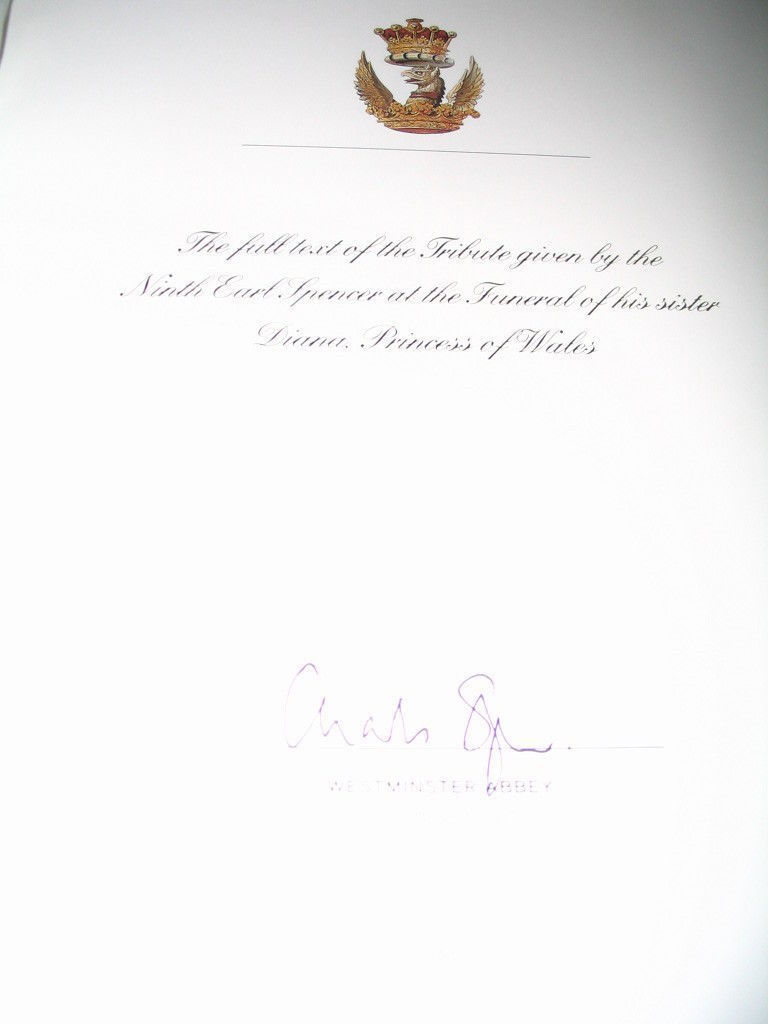 The full text of the Tribute given by the
Ninth Earl Spencer at the Funeral of his sister
Diana, Princess of Wales
Charles Spencer
WESTMINSTER ABBEY